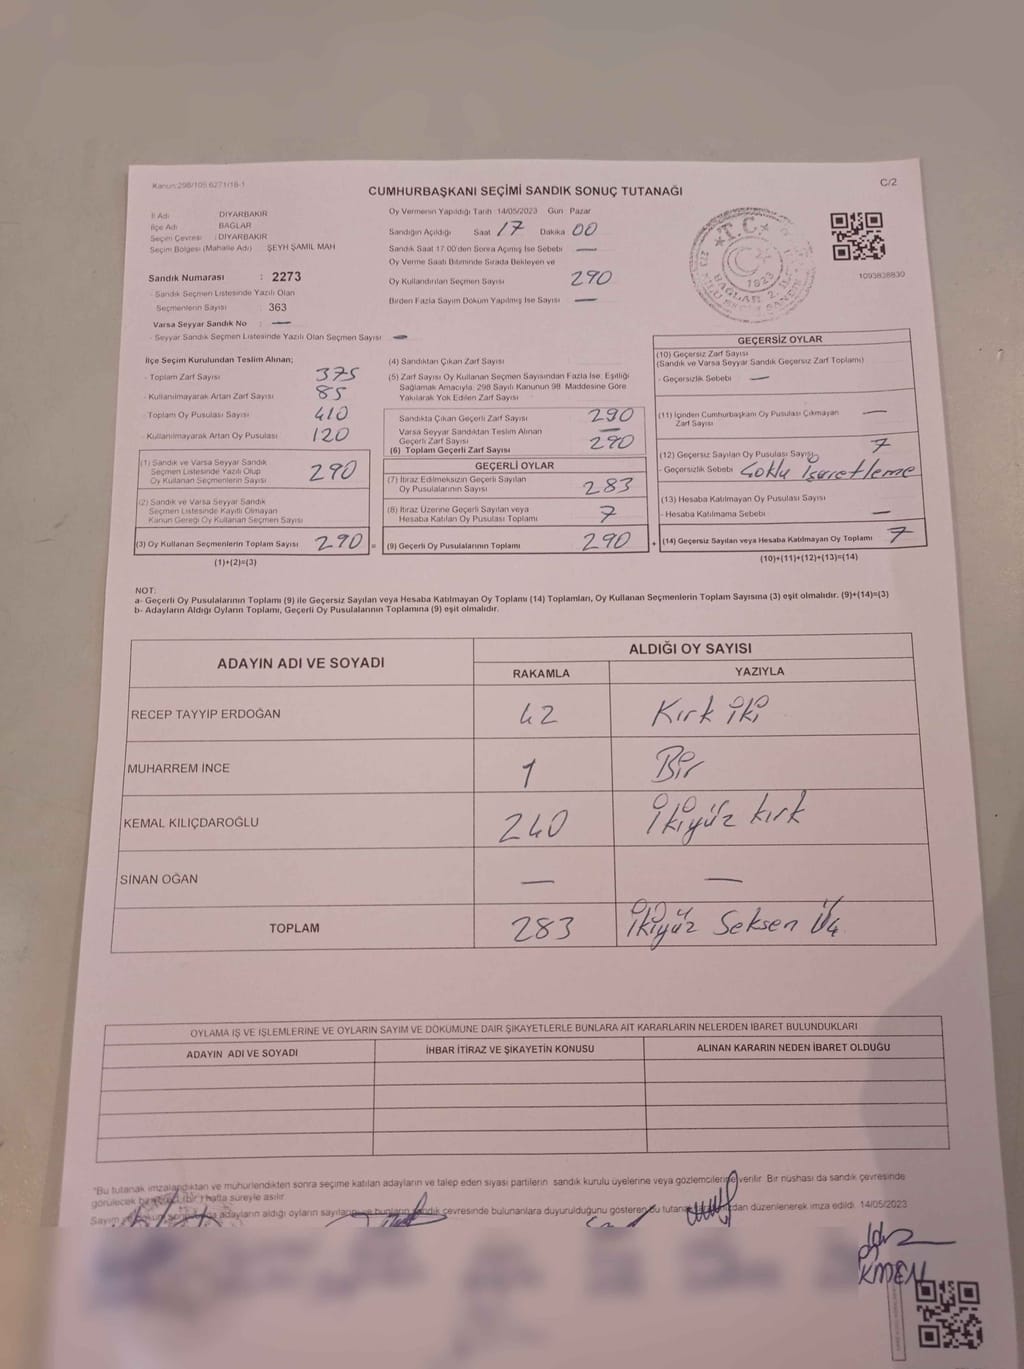 Kanun:298/105 6271/18-1
CUMHURBAŞKANI SEÇİMİ SANDIK SONUÇ TUTANAĞI
C/2
İl Adı DİYARBAKIR
İlçe Adı BAĞLAR
Seçim Çevresi : DİYARBAKIR
Seçim Bölgesi (Mahalle Adı) ŞEYH ŞAMİL MAH
Sandık Numarası : 2273
- Sandık Seçmen Listesinde Yazılı Olan
Seçmenlerin Sayısı : 363
Varsa Seyyar Sandık No : —
- Seyyar Sandık Seçmen Listesinde Yazılı Olan Seçmen Sayısı —
Oy Vermenin Yapıldığı Tarih :14/05/2023 Gün Pazar
Sandığın Açıldığı Saat 17 Dakika 00
Sandık Saat 17 00'den Sonra Açılmış İse Sebebi —
Oy Verme Saati Bitiminde Sırada Bekleyen ve
Oy Kullandırılan Seçmen Sayısı 290
Birden Fazla Sayım Döküm Yapılmış İse Sayısı —
T.C.
1923
BAĞLAR 2. İL
1093838830
İlçe Seçim Kurulundan Teslim Alınan;
- Toplam Zarf Sayısı 375
- Kullanılmayarak Artan Zarf Sayısı 85
Toplam Oy Pusulası Sayısı 410
- Kullanılmayarak Artan Oy Pusulası 120
(1) Sandık ve Varsa Seyyar Sandık
Seçmen Listesinde Yazılı Olup
Oy Kullanan Seçmenlerin Sayısı 290
(2) Sandık ve Varsa Seyyar Sandık
Seçmen Listesinde Kayıtlı Olmayan
Kanun Gereği Oy Kullanan Seçmen Sayısı
(3) Oy Kullanan Seçmenlerin Toplam Sayısı 290 =
(1)+(2)=(3)
(4) Sandıktan Çıkan Zarf Sayısı
(5) Zarf Sayısı Oy Kullanan Seçmen Sayısından Fazla İse; Eşitliği
Sağlamak Amacıyla; 298 Sayılı Kanunun 98. Maddesine Göre
Yakılarak Yok Edilen Zarf Sayısı
Sandıkta Çıkan Geçerli Zarf Sayısı 290
Varsa Seyyar Sandıktan Teslim Alınan
Geçerli Zarf Sayısı —
(6) Toplam Geçerli Zarf Sayısı 290
GEÇERLİ OYLAR
(7) İtiraz Edilmeksizin Geçerli Sayılan
Oy Pusulalarının Sayısı 283
(8) İtiraz Üzerine Geçerli Sayılan veya
Hesaba Katılan Oy Pusulası Toplamı 7
(9) Geçerli Oy Pusulalarının Toplamı 290 +
GEÇERSİZ OYLAR
(10) Geçersiz Zarf Sayısı
(Sandık ve Varsa Seyyar Sandık Geçersiz Zarf Toplamı)
- Geçersizlik Sebebi —
(11) İçinden Cumhurbaşkanı Oy Pusulası Çıkmayan
Zarf Sayısı —
(12) Geçersiz Sayılan Oy Pusulası Sayısı 7
- Geçersizlik Sebebi Çoklu İşaretleme
(13) Hesaba Katılmayan Oy Pusulası Sayısı
- Hesaba Katılmama Sebebi —
(14) Geçersiz Sayılan veya Hesaba Katılmayan Oy Toplamı 7
(10)+(11)+(12)+(13)=(14)
NOT:
a- Geçerli Oy Pusulalarının Toplamı (9) ile Geçersiz Sayılan veya Hesaba Katılmayan Oy Toplamı (14) Toplamları, Oy Kullanan Seçmenlerin Toplam Sayısına (3) eşit olmalıdır. (9)+(14)=(3)
b- Adayların Aldığı Oyların Toplamı, Geçerli Oy Pusulalarının Toplamına (9) eşit olmalıdır.
ADAYIN ADI VE SOYADI
ALDIĞI OY SAYISI
RAKAMLA YAZIYLA
RECEP TAYYİP ERDOĞAN 42 Kırk iki
MUHARREM İNCE 1 Bir
KEMAL KILIÇDAROĞLU 240 İkiyüz kırk
SİNAN OĞAN — —
TOPLAM 283 İkiyüz Seksen Üç
OYLAMA İŞ VE İŞLEMLERİNE VE OYLARIN SAYIM VE DÖKÜMÜNE DAİR ŞİKAYETLERLE BUNLARA AİT KARARLARIN NELERDEN İBARET BULUNDUKLARI
ADAYIN ADI VE SOYADI İHBAR İTİRAZ VE ŞİKAYETİN KONUSU ALINAN KARARIN NEDEN İBARET OLDUĞU
"Bu tutanak imzalandıktan ve mühürlendikten sonra seçime katılan adayların ve talep eden siyasi partilerin sandık kurulu üyelerine veya gözlemcilerine verilir. Bir nüshası da sandık çevresinde
görülecek bir (bir) hafta süreyle asılır.
Sayım adayların aldığı oyların sayıları ve bunların sandık çevresinde bulunanlara duyurulduğunu gösteren bu tutanak düzenlenerek imza edildi. 14/05/2023